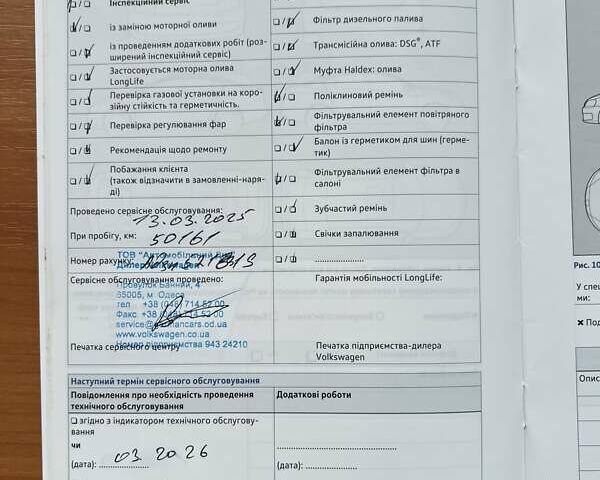 Інспекційний сервіс
із заміною моторної оливи
із проведенням додаткових робіт (роз-
ширений інспекційний сервіс)
Застосовується моторна олива
LongLife
Перевірка газової установки на коро-
зійну стійкість та герметичність.
Перевірка регулювання фар
Рекомендація щодо ремонту
Побажання клієнта
(також відзначити в замовленні-наря-
ді)
Фільтр дизельного палива
Трансмісійна олива: DSG®, ATF
Муфта Haldex: олива
Поліклиновий ремінь
Фільтрувальний елемент повітряного
фільтра
Балон із герметиком для шин (герме-
тик)
Фільтрувальний елемент фільтра в
салоні
Зубчастий ремінь
Свічки запалювання
Проведено сервісне обслуговування:
13.03.2025
При пробігу, км: 50161
Номер рахунку:
ТОВ "Автомобільний
Сервісне обслуговування проведено:
Провулок Банний, 4
65005, м. Одеса
тел +38 (048) 714 52 00
Факс +38 (048) 714 52 00
www.volkswagen.co.ua
Номер підприємства 943 24210
Печатка сервісного центру
Гарантія мобільності LongLife:
Печатка підприємства-дилера
Volkswagen
Наступний термін сервісного обслуговування
Повідомлення про необхідність проведення
технічного обслуговування
❏ згідно з індикатором технічного обслугову-
вання
чи
(дата): 03 2026
Додаткові роботи
(дата):
Рис. 10
У спец
ми:
✖ Под
Опис